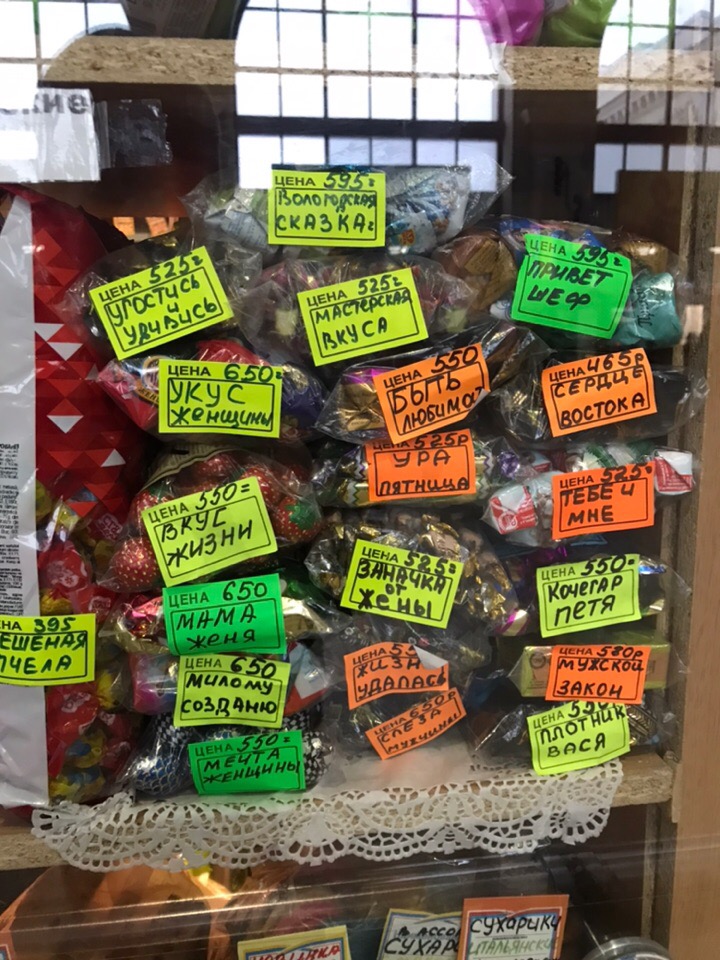 ЦЕНА 595=
ВОЛОГОДСКАЯ
СКАЗКА
ЦЕНА 525=
УГОСТИСЬ
И
УДИВИСЬ
ЦЕНА 525=
МАСТЕРСКАЯ
ВКУСА
ЦЕНА 595=
ПРИВЕТ
ШЕФ
ЦЕНА 650=
УКУС
ЖЕНЩИНЫ
ЦЕНА 550
БЫТЬ
ЛЮБИМОЙ
ЦЕНА 465р
СЕРДЦЕ
ВОСТОКА
ЦЕНА 525р
УРА
ПЯТНИЦА
ЦЕНА 525=
ТЕБЕ И
МНЕ
ЦЕНА 550=
ВКУС
ЖИЗНИ
ЦЕНА 525=
ЗАНАЧКА
ОТ
ЖЕНЫ
ЦЕНА 550=
КОЧЕГАР
ПЕТЯ
ЦЕНА 650
МАМА
ЖЕНЯ
ЕНА 395
ЕШЕНАЯ
ПЧЕЛА
ЦЕНА 650
МИЛОМУ
СОЗДАНЮ
ЦЕНА
ЖИЗН
УДАЛАСЬ
ЦЕНА 580р
МУЖСКОЙ
ЗАКОН
ЦЕНА 650р
СЛЕЗА
МУЖЧИНЫ
ЦЕНА
ПЛОТНИК
ВАСЯ
ЦЕНА 550=
МЕЧТА
ЖЕНЩИНЫ
В АССО
СУХАР
СУХАРИКИ
ИТАЛЬЯНСКИ